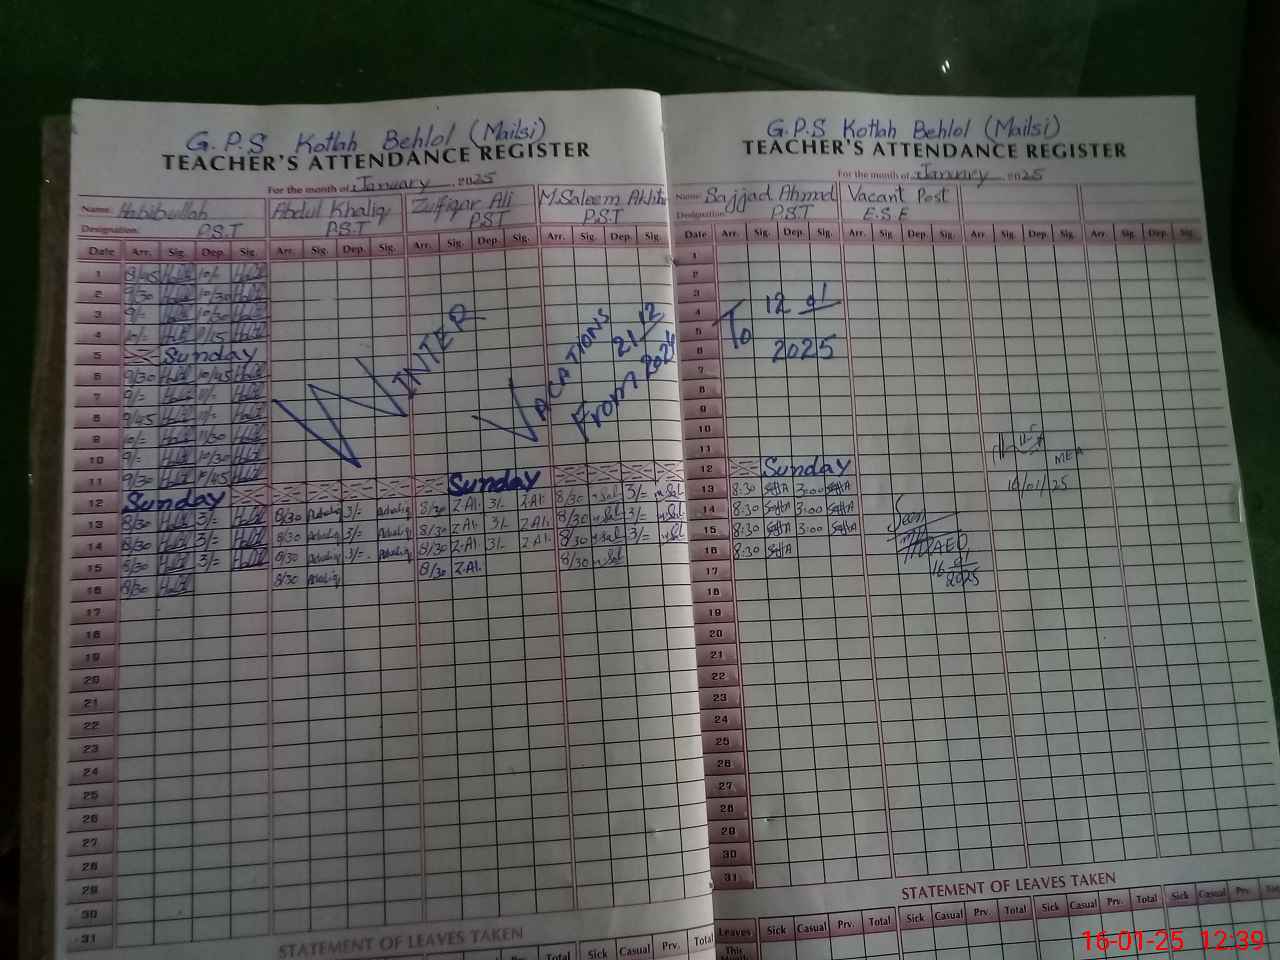 G.P.S Kotlah Behlol (Mailsi)
TEACHER'S ATTENDANCE REGISTER
For the month of January, 2025
Name: Habibullah Abdul Khaliq Zulfiqar Ali M.Saleem Akhtar
Designation: P.S.T P.S.T P.S.T P.S.T
Date Arr. Sig. Dep. Sig. Arr. Sig. Dep. Sig. Arr. Sig. Dep. Sig. Arr. Sig. Dep. Sig.
1 8/45 10/-
2 9/30 10/30
3 9/- 10/30
4 10/- 11/15
5 Sunday
6 9/30 10/45
7 9/= 11/=
8 9/45 11/=
9 10/= 11/30
10 9/= 10/30
11 9/30 10/45
WINTER VACATIONS From 21 12 2024
12 Sunday Sunday
13 8/30 3/= 8/30 3/= 8/30 Z.Al. 3/- Z.Al. 8/30 3/=
14 8/30 3/= 8/30 3/= 8/30 Z.Al. 3/- Z.Al. 8/30 3/=
15 8/30 3/= 8/30 3/= 8/30 Z.Al. 3/- Z.Al. 8/30 3/=
16 8/30 8/30 8/30 Z.Al. 8/30
17
18
19
20
21
22
23
24
25
26
27
28
29
30
31
STATEMENT OF LEAVES TAKEN
Sick Casual Prv. Total
G.P.S Kotlah Behlol (Mailsi)
TEACHER'S ATTENDANCE REGISTER
For the month of January, 2025
Name: Sajjad Ahmed Vacant Post
Designation: P.S.T E.S.E
Date Arr. Sig. Dep. Sig. Arr. Sig. Dep. Sig. Arr. Sig. Dep. Sig. Arr. Sig. Dep. Sig.
1
2
3
4
5
6
To 12 01 2025
7
8
9
10
11
12 Sunday
MEA
16/01/25
13 8:30 3:00
14 8:30 3:00
15 8:30 3:00
16 8:30
Seen
AEO
16 01 2025
17
18
19
20
21
22
23
24
25
26
27
28
29
30
31
STATEMENT OF LEAVES TAKEN
Leaves Sick Casual Prv. Total Sick Casual Prv. Total Sick Casual Prv. Total Sick Casual Prv.
This
16-01-25 12:39